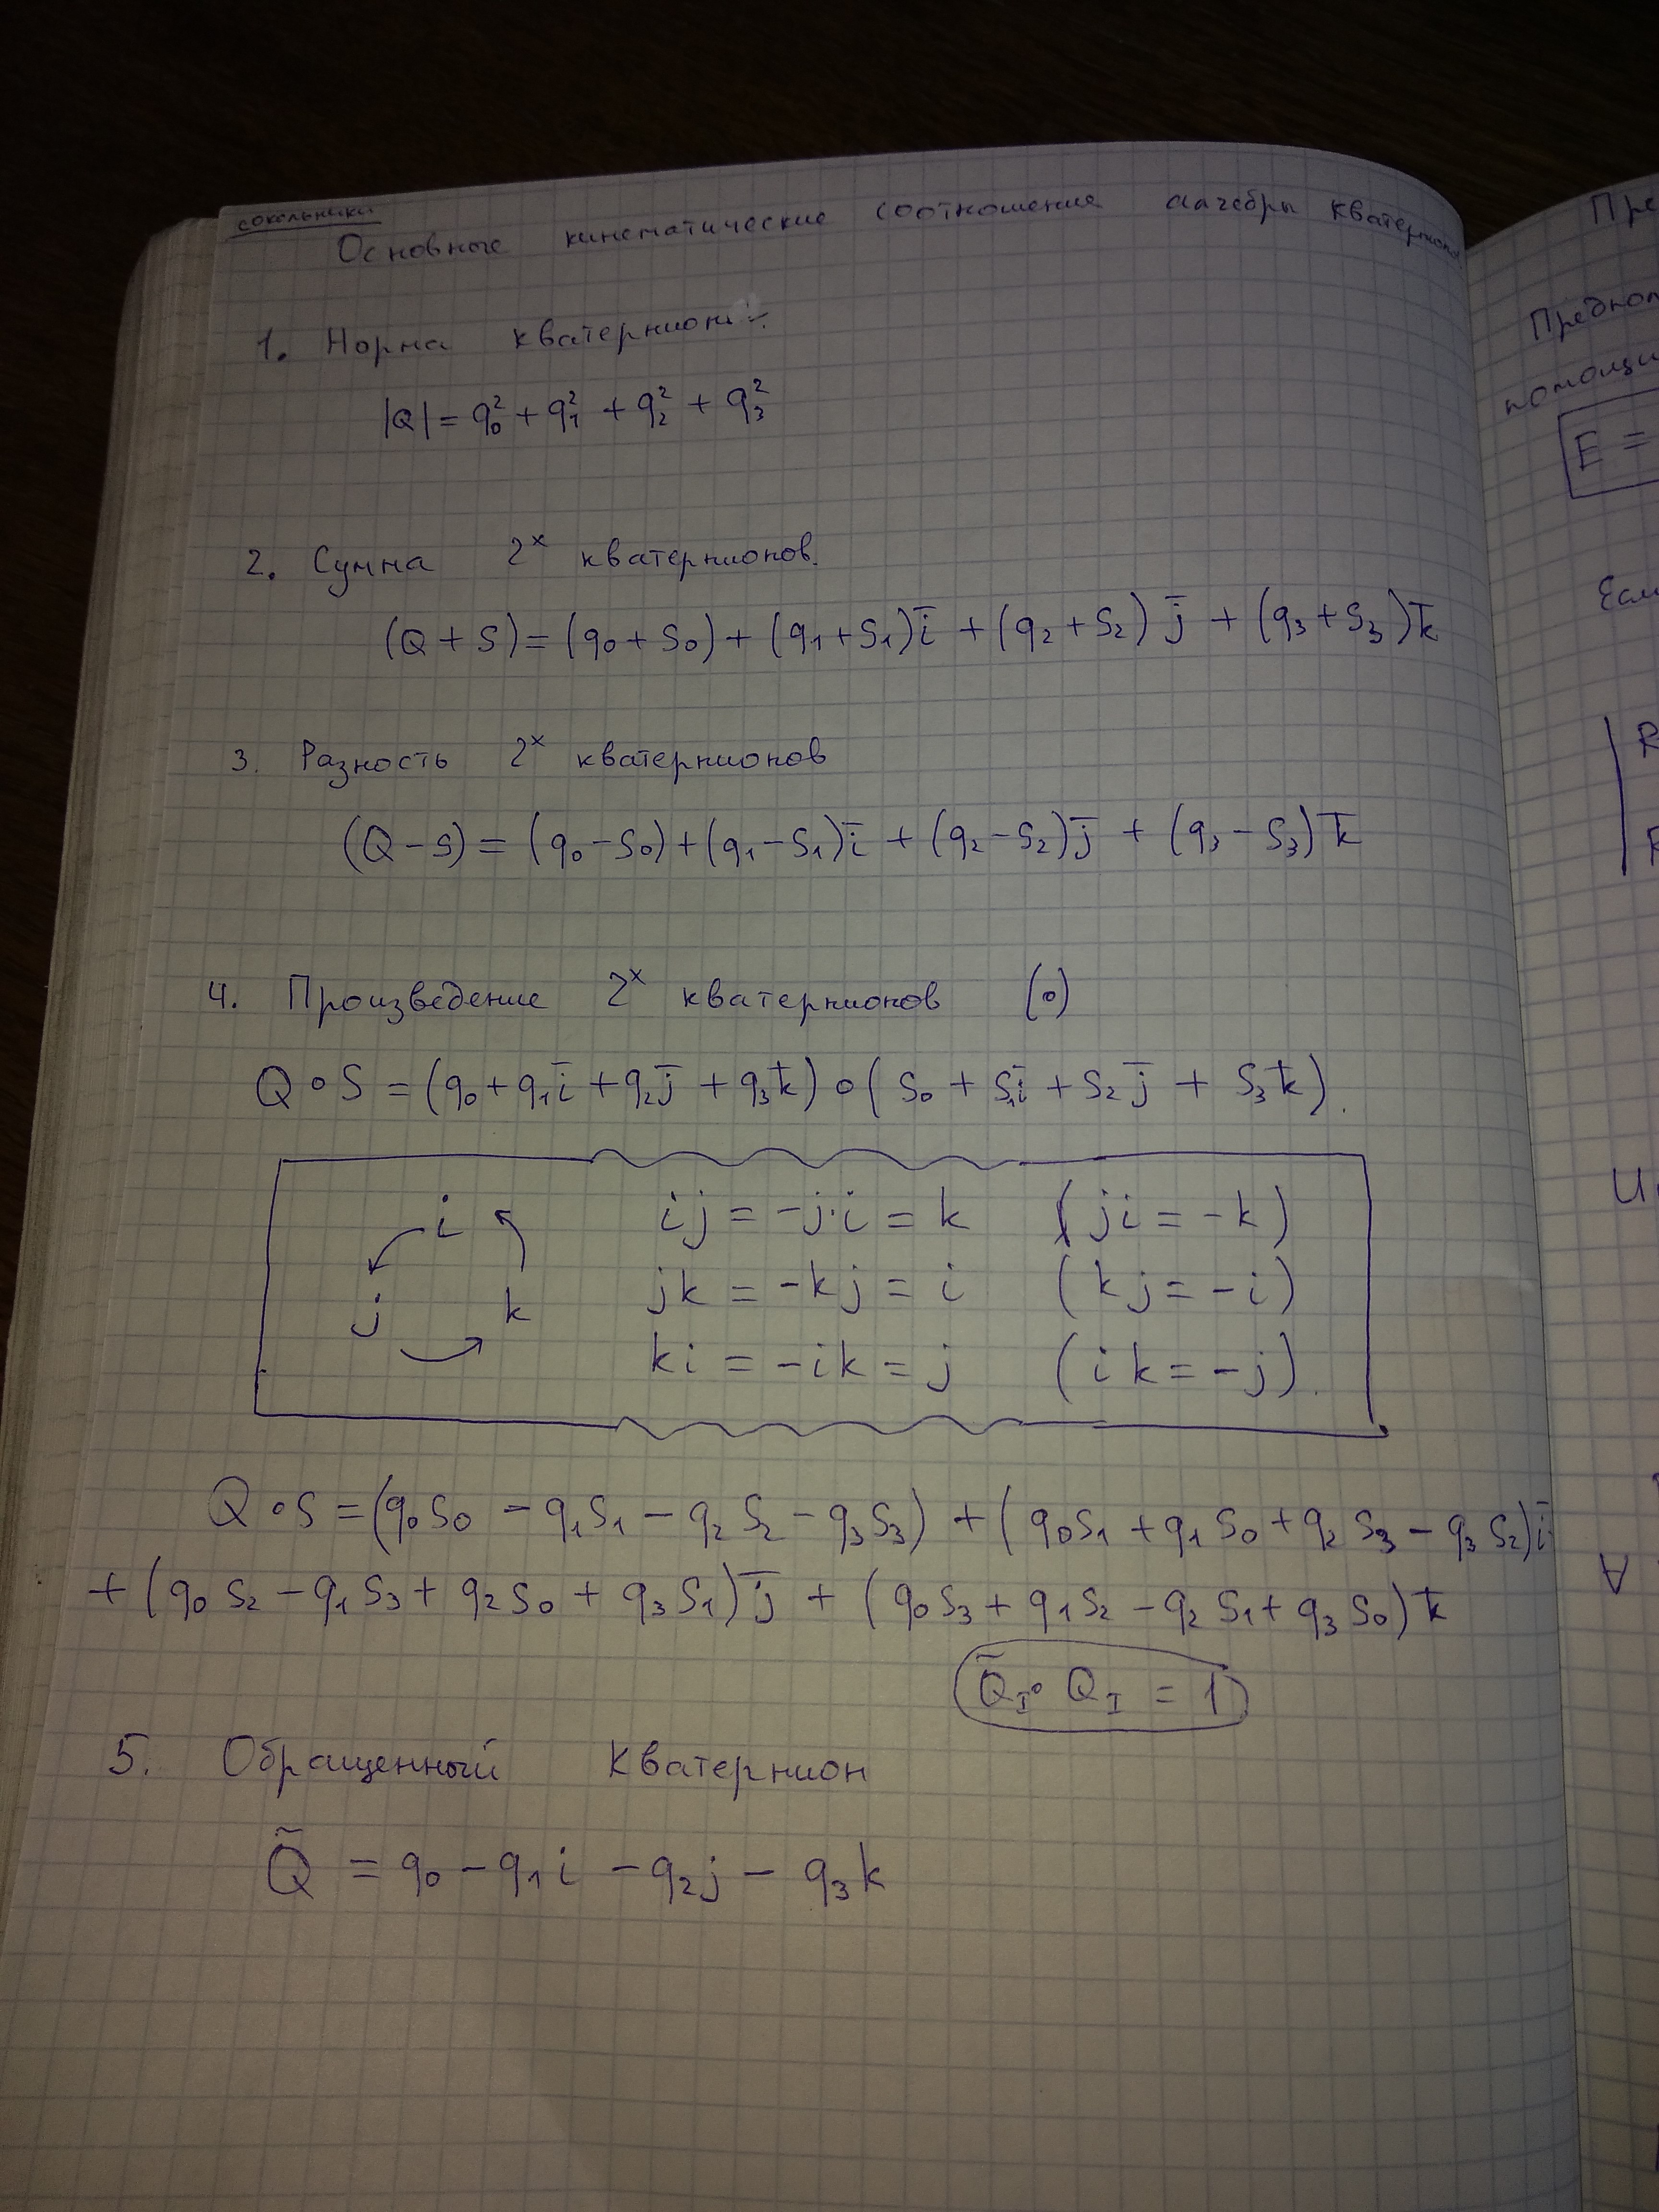 сокольники
Основные кинематические соотношение алгебры кватерниона
1. Норма кватерниона
|Q| = q₀² + q₁² + q₂² + q₃²
2. Сумма 2ˣ кватернионов.
(Q + S) = (q₀ + S₀) + (q₁ + S₁)i̅ + (q₂ + S₂)j̅ + (q₃ + S₃)k̅
3. Разность 2ˣ кватернионов
(Q − S) = (q₀ − S₀) + (q₁ − S₁)i̅ + (q₂ − S₂)j̅ + (q₃ − S₃)k̅
4. Произведение 2ˣ кватернионов (∘)
Q ∘ S = (q₀ + q₁i̅ + q₂j̅ + q₃k̅) ∘ (S₀ + S₁i̅ + S₂j̅ + S₃k̅).
i j k
ij = −j·i = k (ji = −k)
jk = −kj = i (kj = −i)
ki = −ik = j (ik = −j).
Q ∘ S = (q₀S₀ − q₁S₁ − q₂S₂ − q₃S₃) + (q₀S₁ + q₁S₀ + q₂S₃ − q₃S₂)i̅
+ (q₀S₂ − q₁S₃ + q₂S₀ + q₃S₁)j̅ + (q₀S₃ + q₁S₂ − q₂S₁ + q₃S₀)k̅
Q̃_I ∘ Q_I = 1
5. Обращенный Кватернион
Q̃ = q₀ − q₁i − q₂j − q₃k
помощи
E =